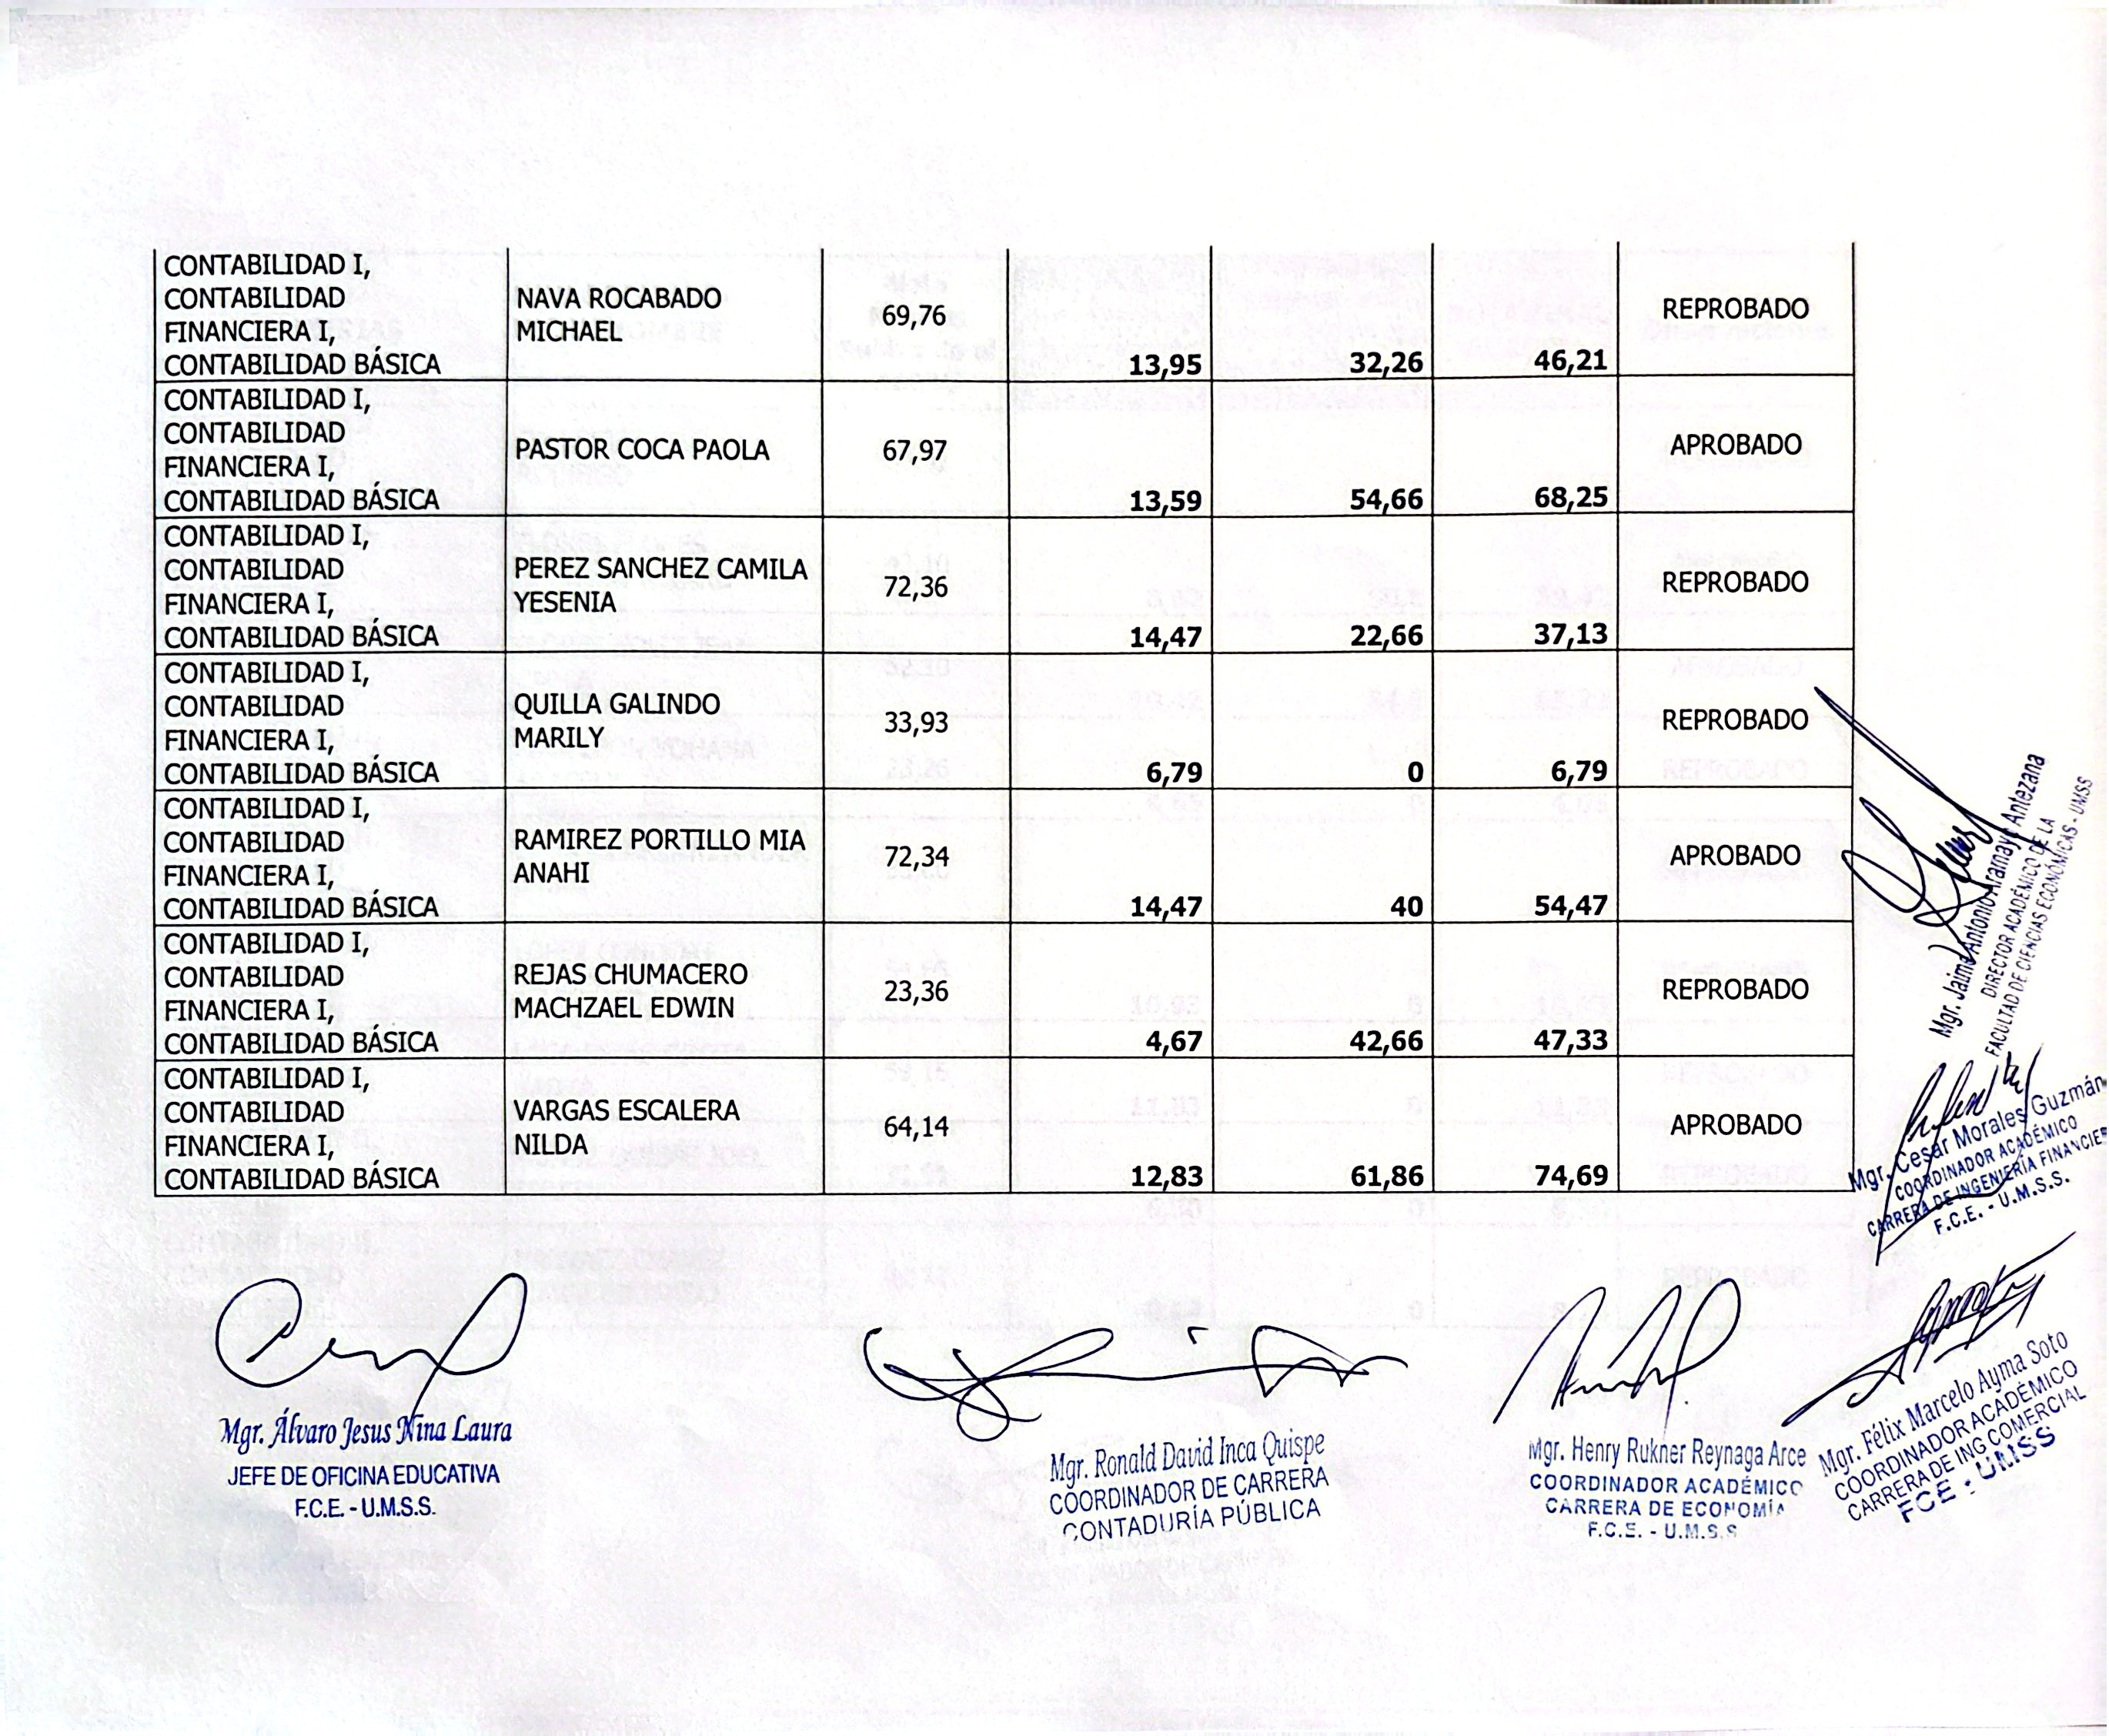 CONTABILIDAD I,
CONTABILIDAD
FINANCIERA I,
CONTABILIDAD BÁSICA
NAVA ROCABADO
MICHAEL
69,76
13,95
32,26
46,21
REPROBADO
CONTABILIDAD I,
CONTABILIDAD
FINANCIERA I,
CONTABILIDAD BÁSICA
PASTOR COCA PAOLA
67,97
13,59
54,66
68,25
APROBADO
CONTABILIDAD I,
CONTABILIDAD
FINANCIERA I,
CONTABILIDAD BÁSICA
PEREZ SANCHEZ CAMILA
YESENIA
72,36
14,47
22,66
37,13
REPROBADO
CONTABILIDAD I,
CONTABILIDAD
FINANCIERA I,
CONTABILIDAD BÁSICA
QUILLA GALINDO
MARILY
33,93
6,79
0
6,79
REPROBADO
CONTABILIDAD I,
CONTABILIDAD
FINANCIERA I,
CONTABILIDAD BÁSICA
RAMIREZ PORTILLO MIA
ANAHI
72,34
14,47
40
54,47
APROBADO
CONTABILIDAD I,
CONTABILIDAD
FINANCIERA I,
CONTABILIDAD BÁSICA
REJAS CHUMACERO
MACHZAEL EDWIN
23,36
4,67
42,66
47,33
REPROBADO
CONTABILIDAD I,
CONTABILIDAD
FINANCIERA I,
CONTABILIDAD BÁSICA
VARGAS ESCALERA
NILDA
64,14
12,83
61,86
74,69
APROBADO
Mgr. Jaime Antonio Aramayo Antezana
DIRECTOR ACADÉMICO DE LA
FACULTAD DE CIENCIAS ECONÓMICAS - UMSS
Mgr. Cesar Morales Guzmán
COORDINADOR ACADÉMICO
CARRERA DE INGENIERÍA FINANCIER
F.C.E. - U.M.S.S.
Mgr. Álvaro Jesus Nina Laura
JEFE DE OFICINA EDUCATIVA
F.C.E. - U.M.S.S.
Mgr. Ronald David Inca Quispe
COORDINADOR DE CARRERA
CONTADURÍA PÚBLICA
Mgr. Henry Rukner Reynaga Arce
COORDINADOR ACADÉMICO
CARRERA DE ECONOMÍA
F.C.E. - U.M.S.S
Mgr. Félix Marcelo Ayma Soto
COORDINADOR ACADÉMICO
CARRERA DE ING COMERCIAL
FCE - UMSS